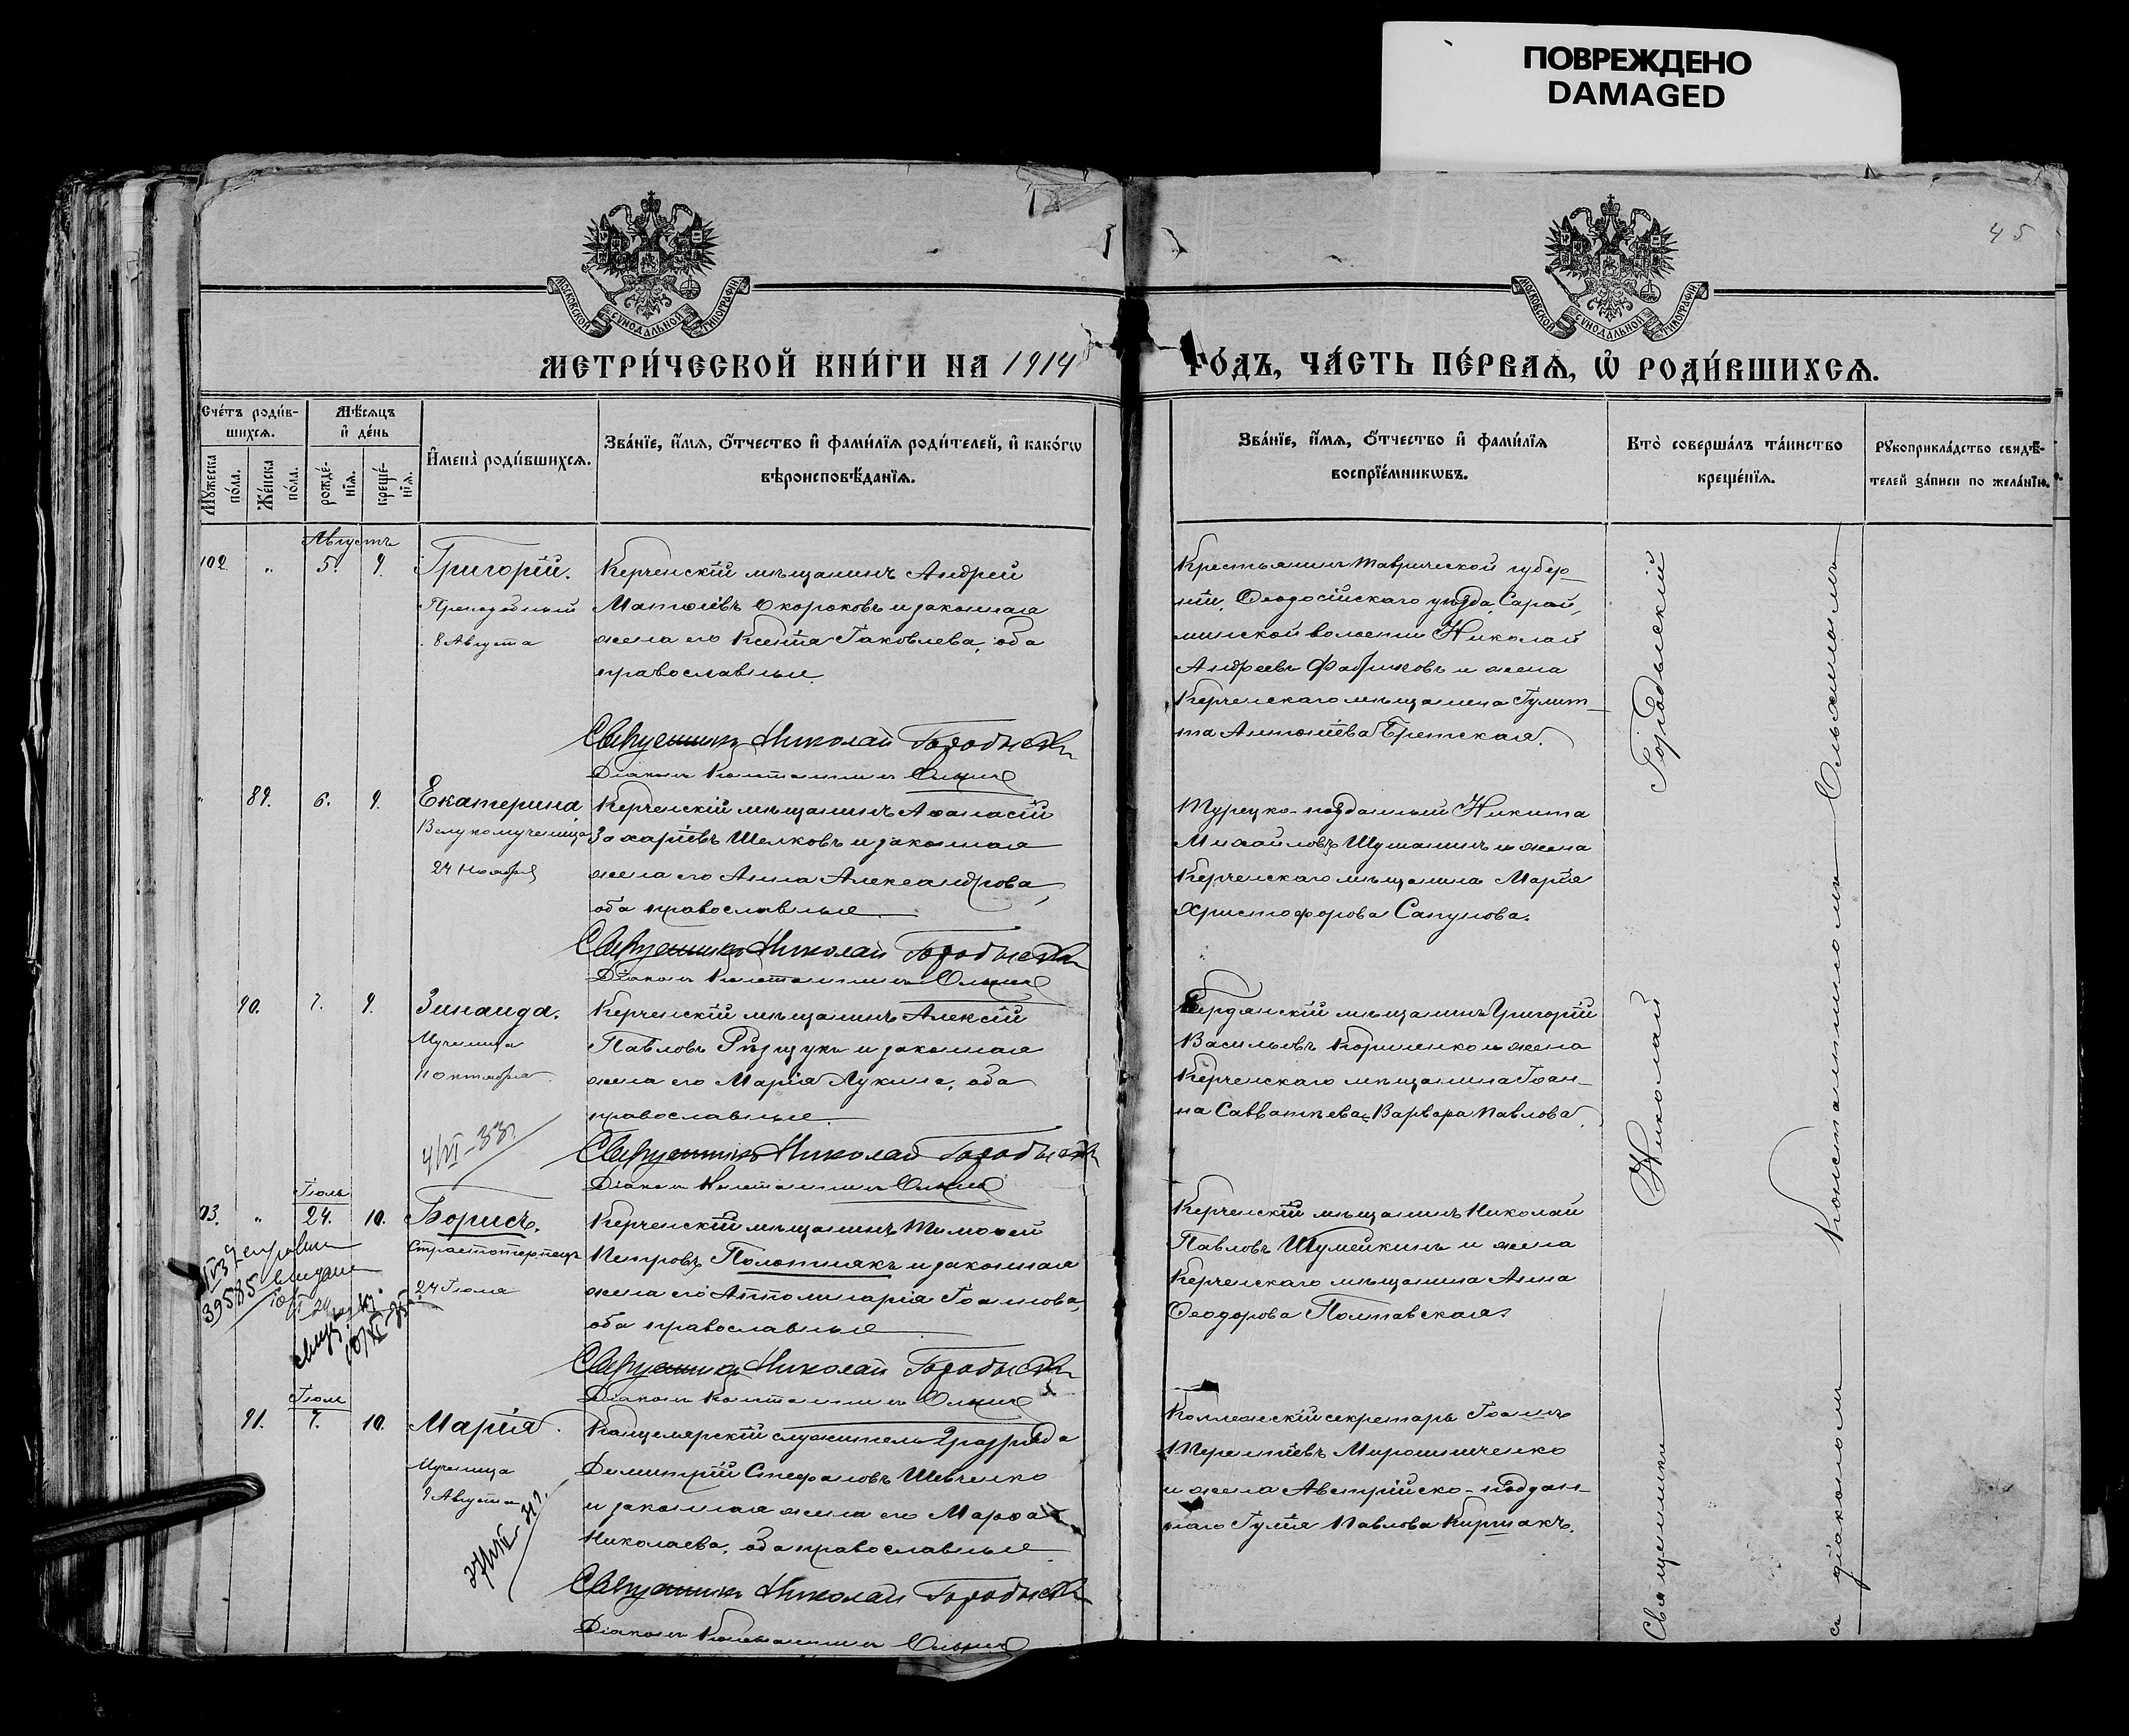 ПОВРЕЖДЕНО
DAMAGED
45
МОСКОВСКОЙ СУНОДАЛЬНОЙ ТИПОГРАФІИ
МОСКОВСКОЙ СУНОДАЛЬНОЙ ТИПОГРАФІИ
МЕТРИ́ЧЕСКОЙ КНИ́ГИ НА 1914
ГО́ДЪ, ЧА́СТЬ ПЕ́РВАѦ, Ѡ҆ РОДИ́ВШИХСѦ.
Сче́тъ роди́в-
шихсѧ.
Мѣ́сѧцъ
и҆ де́нь
Мꙋ́жеска
по́ла.
Же́нска
по́ла.
рожде́-
нїѧ.
креще́-
нїѧ.
И҆мена̀ роди́вшихсѧ.
Зва́нїе, и҆́мѧ, ѻ҆́тчество и҆ фами́лїѧ роди́телей, и҆ како́гѡ
вѣроисповѣ́данїѧ.
Зва́нїе, и҆́мѧ, ѻ҆́тчество и҆ фами́лїѧ
воспрїе́мникѡвъ.
Кто̀ соверша́лъ та́инство
креще́нїѧ.
Рꙋкоприкла́дство свидѣ́-
телей за́писи по жела́нїю.
Августъ
102 " 5. 9. Григорій.
Преподобный
8 Августа
Керченскій мѣщанинъ Андрей
Матѳіевъ Окороковъ и законная
жена его Ксенія Іаковлева, оба
православные.
Священникъ Николай Городыскій
Діаконъ Константинъ
Крестьянинъ Таврической губер-
ніи, Ѳеодосійскаго уѣзда, Сарай-
минской волости Николай
Андреевъ Фабриковъ и жена
Керченскаго мѣщанина Іулит-
та Антоніева Бретская.
" 89. 6. 9. Екатерина
Великомученица
24 Ноября
Керченскій мѣщанинъ Аѳанасій
Захаріевъ Шелковъ и законная
жена его Анна Александрова,
оба православные
Священникъ Николай Городыскій
Діаконъ Константинъ
Турецко-подданный Никита
Михайловъ Шуманинъ и жена
Керченскаго мѣщанина Марія
Христофорова Сапунова.
90. 7. 9. Зинаида.
Мученица
11 Октября
4/VI-33 г.
Керченскій мѣщанинъ Алексій
Павловъ и законная
жена его Марія Лукина, оба
православные
Священникъ Николай Городыскій
Діаконъ Константинъ
Бердянскій мѣщанинъ Григорій
Васильевъ Корниенко и жена
Керченскаго мѣщанина Іоан-
на Савватѣева, Варвара Павлова.
Іюль
103. " 24. 10. Борисъ.
Страстотерпецъ
24 Іюля
39585
Керченскій мѣщанинъ Тимоѳей
Петровъ Полотнякъ и законная
жена его Апполинарія Іоаннова,
оба православные
Священникъ Николай Городыскій
Діаконъ Константинъ
Керченскій мѣщанинъ Николай
Павловъ Шумейкинъ и жена
Керченскаго мѣщанина Анна
Ѳеодорова Полтавская.
Іюль
91. 7. 10. Марія.
Мученица
9 Августа
Канцелярскій служитель 2 разряда
Димитрій Стефановъ Шевченко
и законная жена его Марѳа
Николаева, оба православные
Священникъ Николай Городыскій
Діаконъ Константинъ
Коллежскій секретарь Іоаннъ
Терентіевъ Мирошниченко
и жена Австрійско-поддан-
наго Іулія Павлова Киршакъ.
Священникъ Николай Городыскій
съ діакономъ Константиномъ